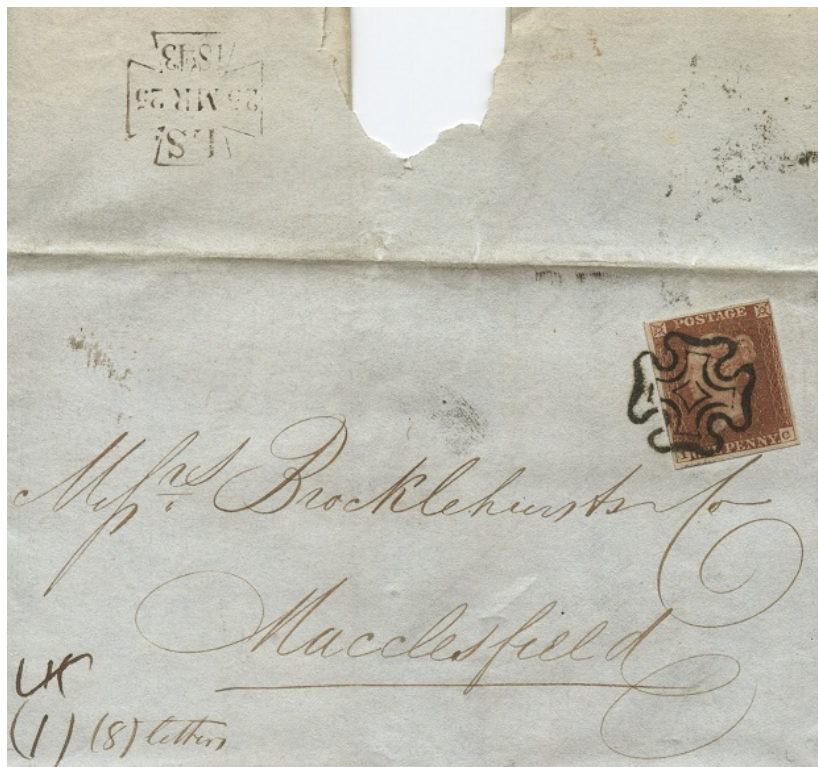 LS
25 MR 25
1843
POSTAGE
PENNY C
Messrs Brocklehursts & Co
Macclesfield
UK
(1) (8) letters